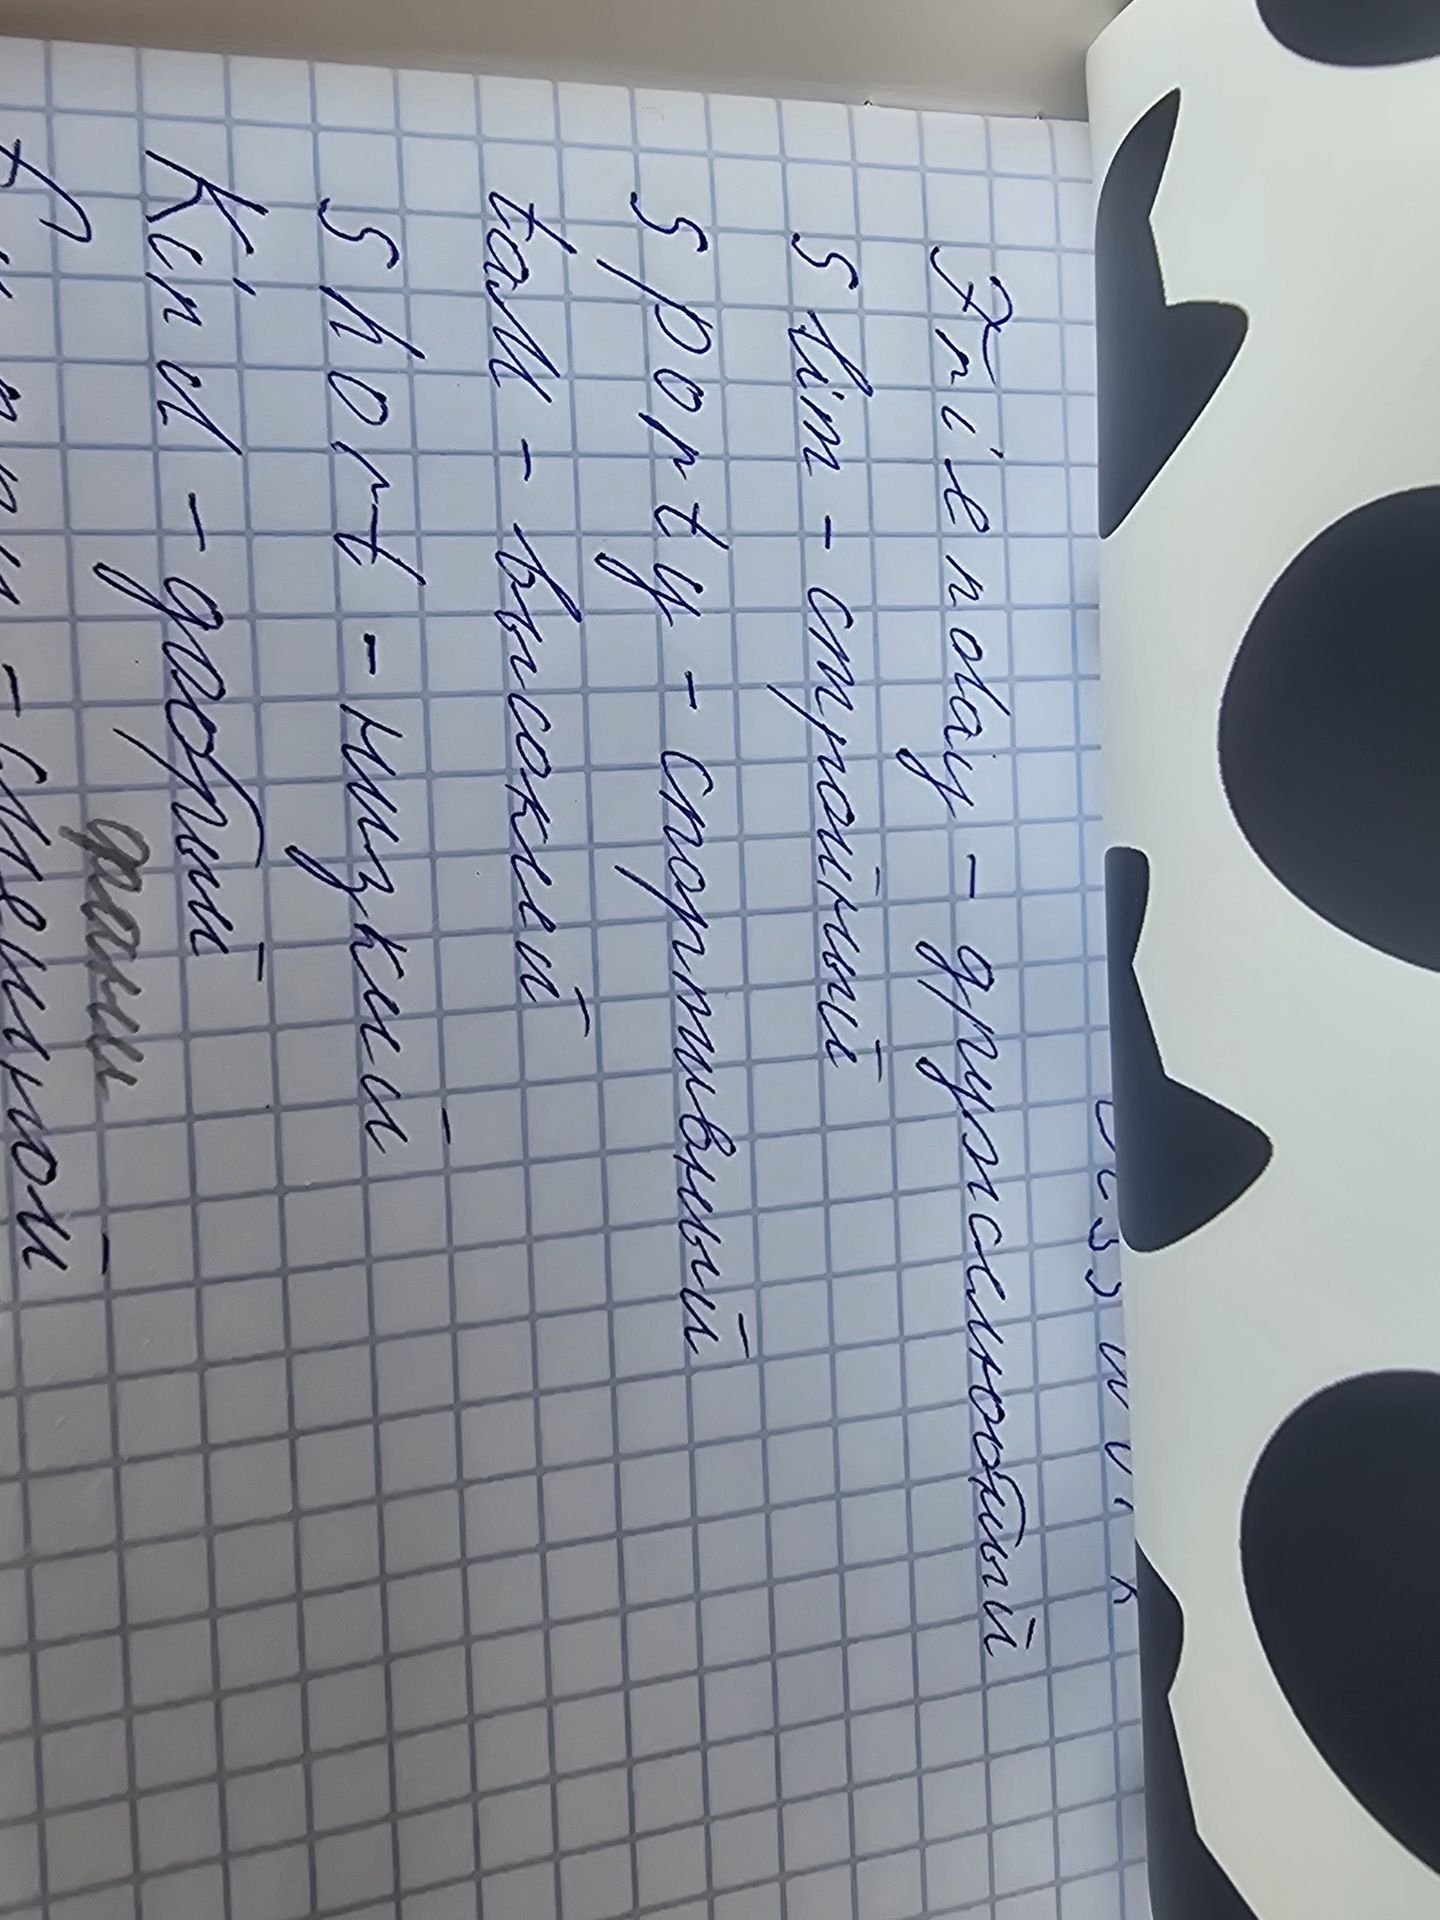 Friendly - дружелюбный
Slim - стройный
Sporty - спортивный
tall - высокий
Short - низкий
Kind - добрый